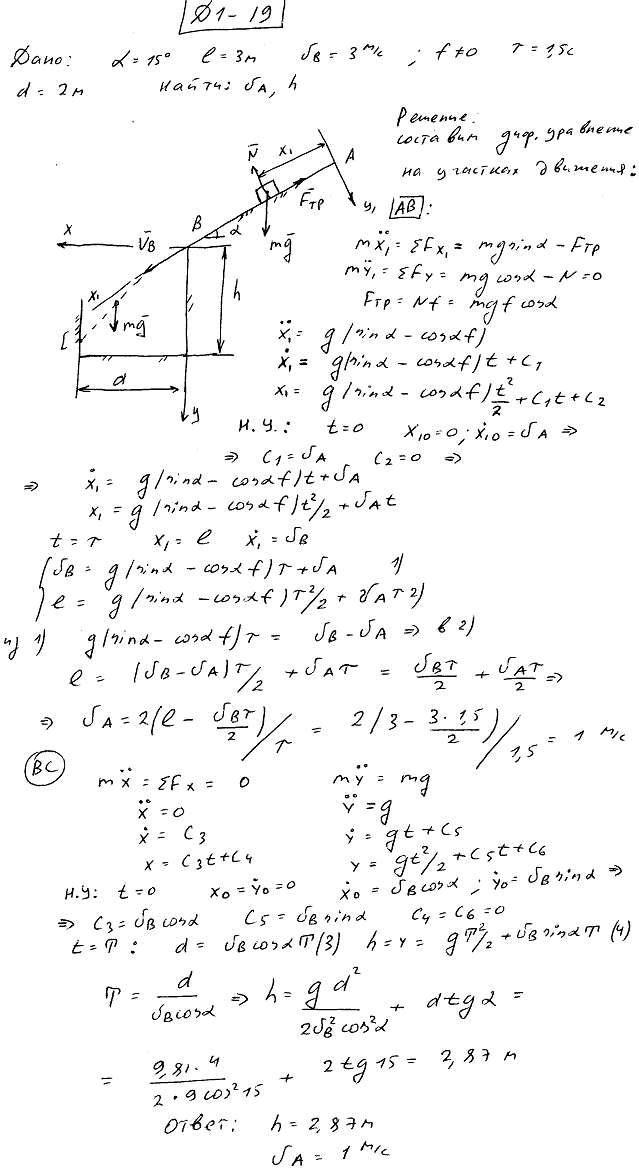 Д1-19
Дано: α=15° ℓ=3м υB=3 м/с ; f≠0 τ=1,5с
d=2м Найти: υA, h
Решение:
составим диф. уравнение
на участках движения:
N̄ x₁ A
F̄тр y₁ AB:
x V̄B B α mḡ
h
x₁ mḡ
d
y
mẍ₁=ΣFx₁=mg sinα-Fтр
mÿ₁=ΣFy=mg cosα-N=0
Fтр=Nf=mgf cosα
ẍ₁=g(sinα-cosαf)
ẋ₁=g(sinα-cosαf)t+C₁
x₁=g(sinα-cosαf)t²/2+C₁t+C₂
Н.У.: t=0 x₁₀=0; ẋ₁₀=υA ⇒
⇒ C₁=υA C₂=0 ⇒
⇒ ẋ₁=g(sinα-cosαf)t+υA
x₁=g(sinα-cosαf)t²/2+υAt
t=τ x₁=ℓ ẋ₁=υB
{υB=g(sinα-cosαf)τ+υA 1)
ℓ=g(sinα-cosαf)τ²/2+υAτ 2)
из 1) g(sinα-cosαf)τ=υB-υA ⇒ в 2)
ℓ=(υB-υA)τ/2+υAτ=υBτ/2+υAτ/2 ⇒
⇒ υA=2(ℓ-υBτ/2)/τ=2(3-3·1,5/2)/1,5=1 м/с
BC
mẍ=ΣFx=0 mÿ=mg
ẍ=0 ÿ=g
ẋ=C₃ ẏ=gt+C₅
x=C₃t+C₄ y=gt²/2+C₅t+C₆
Н.У: t=0 x₀=y₀=0 ẋ₀=υB cosα; ẏ₀=υB sinα ⇒
⇒ C₃=υB cosα C₅=υB sinα C₄=C₆=0
t=T: d=υB cosαT(3) h=y=gT²/2+υB sinαT (4)
T=d/υB cosα ⇒ h=gd²/2υB²cos²α+d tgα=
=9,81·4/2·9cos²15+2tg15=2,87м
Ответ: h=2,87м
υA=1 м/с